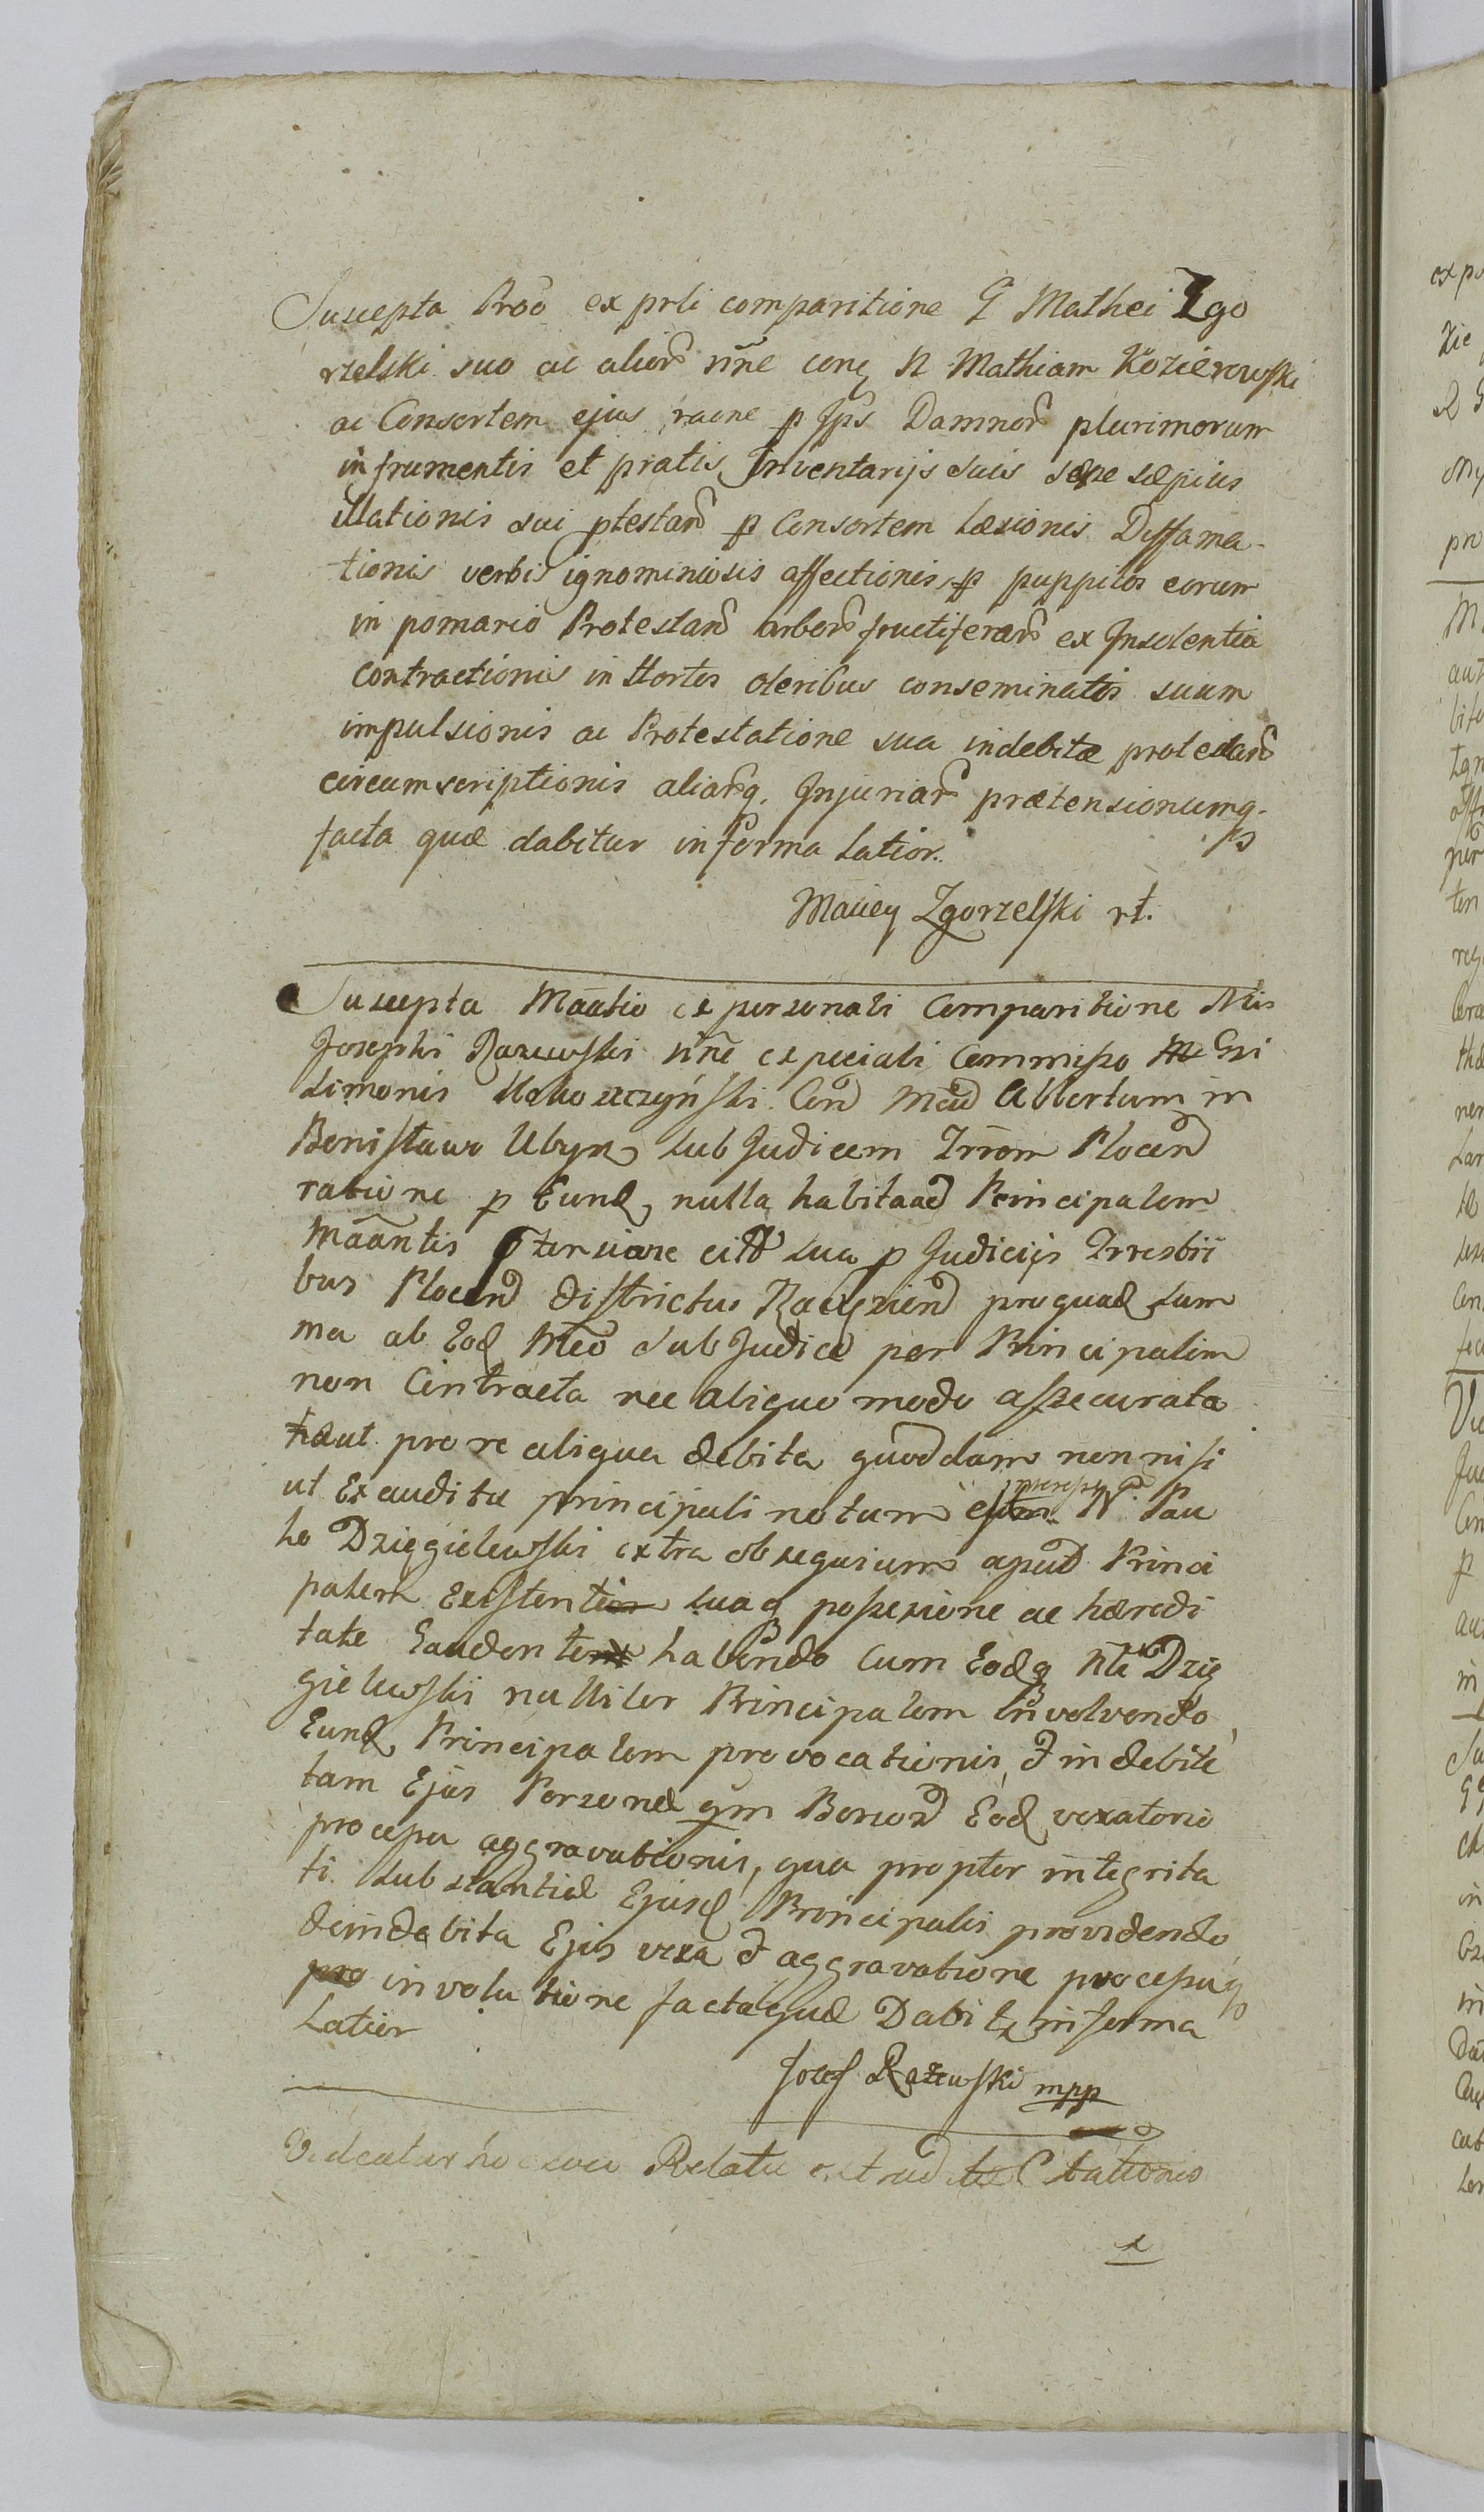 Suscepta Proō ex prli comparitione G Mathei Zgo
rzelski suo ac alior nñe con N Mathiam Kozierowski
ac Consortem ejus raone p Ips Damnor plurimorum
in frumentis et pratis Inventarijs suis sæpe sæpius
illationis sui ptestan p Consortem Læsionis Diffama-
tionis verbis ignominiosis affectionis p puppilos eorum
in pomario Protestan arbor fructiferar ex Insolentia
contractionis in Hortos oleribus conseminatos suum
impulsionis ac Protestatione sua indebitæ protestan
circumscriptionis aliarq. Injuriar prætensionumq.
facta quæ dabitur in forma Latior.
Maciey Zgorzelski rt.
Suscepta Māātio ex personali Comparitione Nlis
Josephi Razewski nñe expeciali Commisso Gsi
Simonis Con Albertum in
Bonisławo Ubysz sub Judicem Trrem Plocen
ratione p Eund, nulla habita ad Principalem
Māāntis citt sua p Judicijs Trrestri
bus Plocen districtus Raciązien pro quad sum
ma ab Eod sub Judice per Principalem
non Contracta nec aliquo modo assecurata
haut pro re aliqua debita quoddam non nisi
ut Ex auditu principali notum est N. Pau
lo Dzięgielewski extra obsequium apud Princi
palem Existenti suaq possesione ac hæredi
tate Gaudente habendo Cum Eodq Nle Dzię
gielewski nulliter Principalem involvendo
Eund Principalem provocationis, & indebite
tam Ejus Personæ qm Bonor Eod vexatorio
processu aggravationis, qua propter integrita
ti substantiæ Ejusd Principalis providendo
de indebita Ejus vexa & aggravatione processuq
involutione facta quæ Dabit in forma
Latior
Josef Rażewski mpp
Videatur hoc loco Relatio extraditæ Citationis